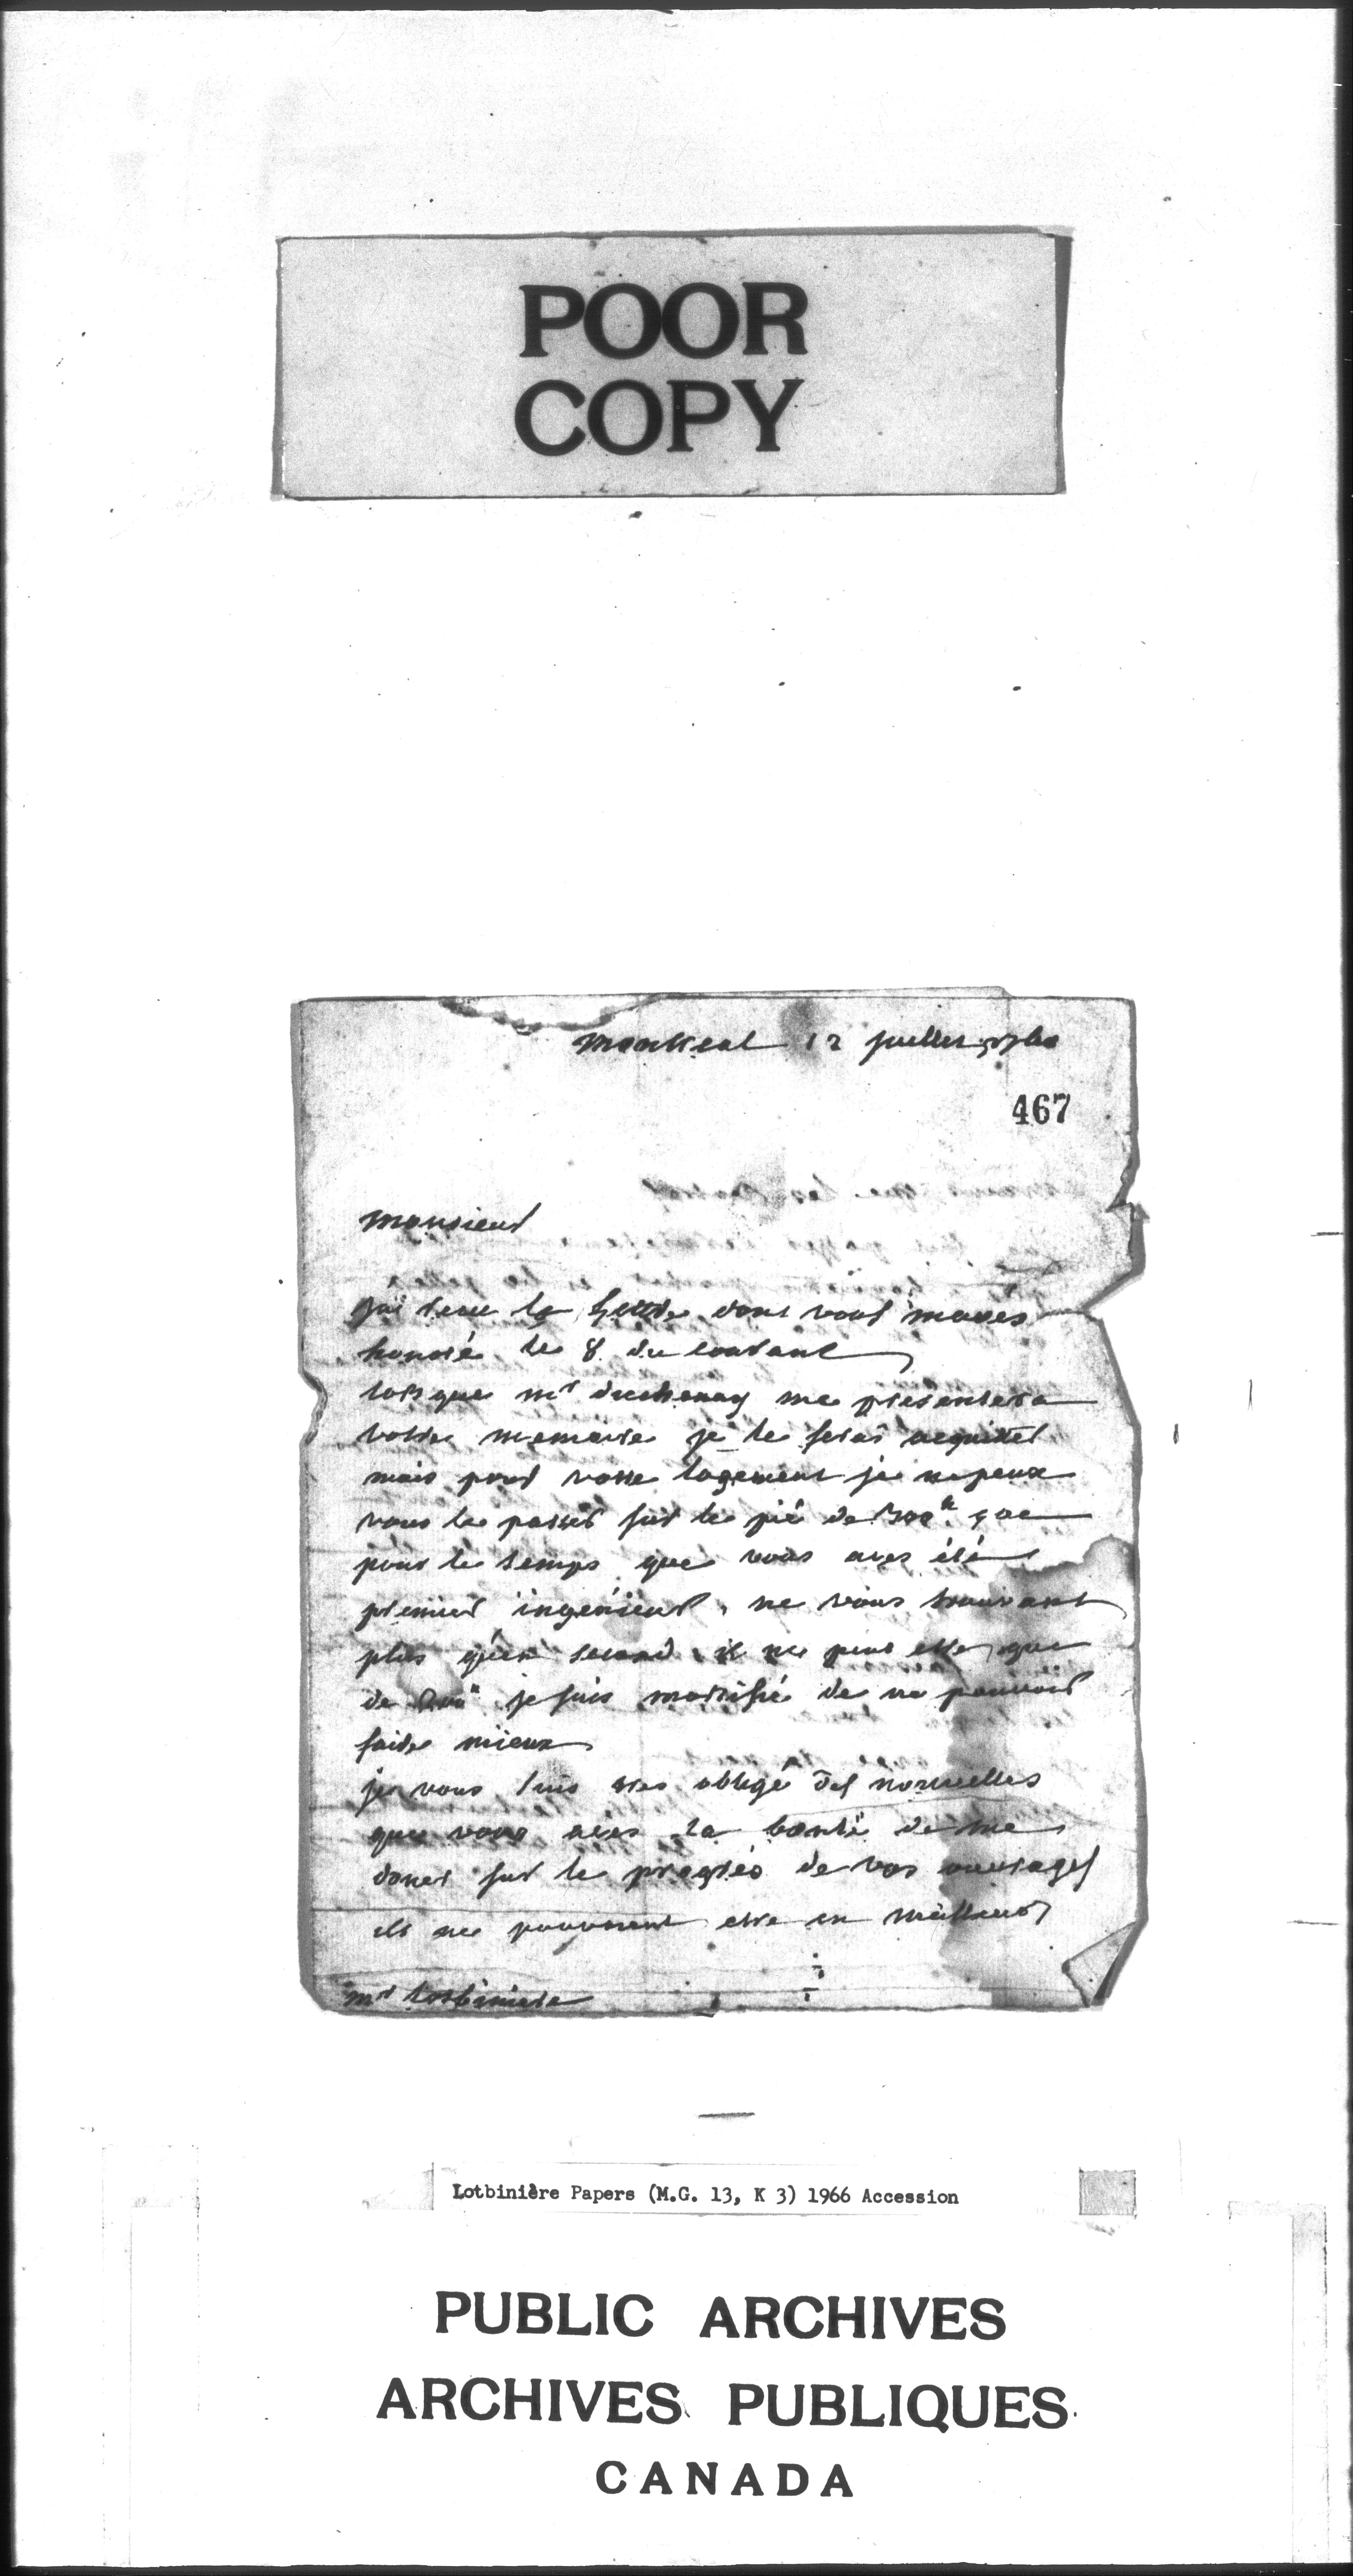 POOR
COPY
montreal 12 juillet 1760
467
monsieur
j'ai receu la lettre dont vous maves
honoré le 8 du courant
lorsque mr duchenay me presentera
votre memoire je le ferai acquitter
mais pour votre logement je ne peux
vous le passer sur le pié de 500ll que
pour le temps que vous aves été
premier ingenieur, ne vous trouvant
plus qu'en second il ne peut estre que
de je suis mortifié de ne pouvoir
faire mieux
je vous suis tres obligé des nouvelles
que vous aves la bonté de me
doner sur le progrés de vos ouvrages
ils ne pouvoient etre en meilleur
mr Lotbiniere
Lotbinière Papers (M.G. 13, K 3) 1966 Accession
PUBLIC ARCHIVES
ARCHIVES PUBLIQUES
CANADA